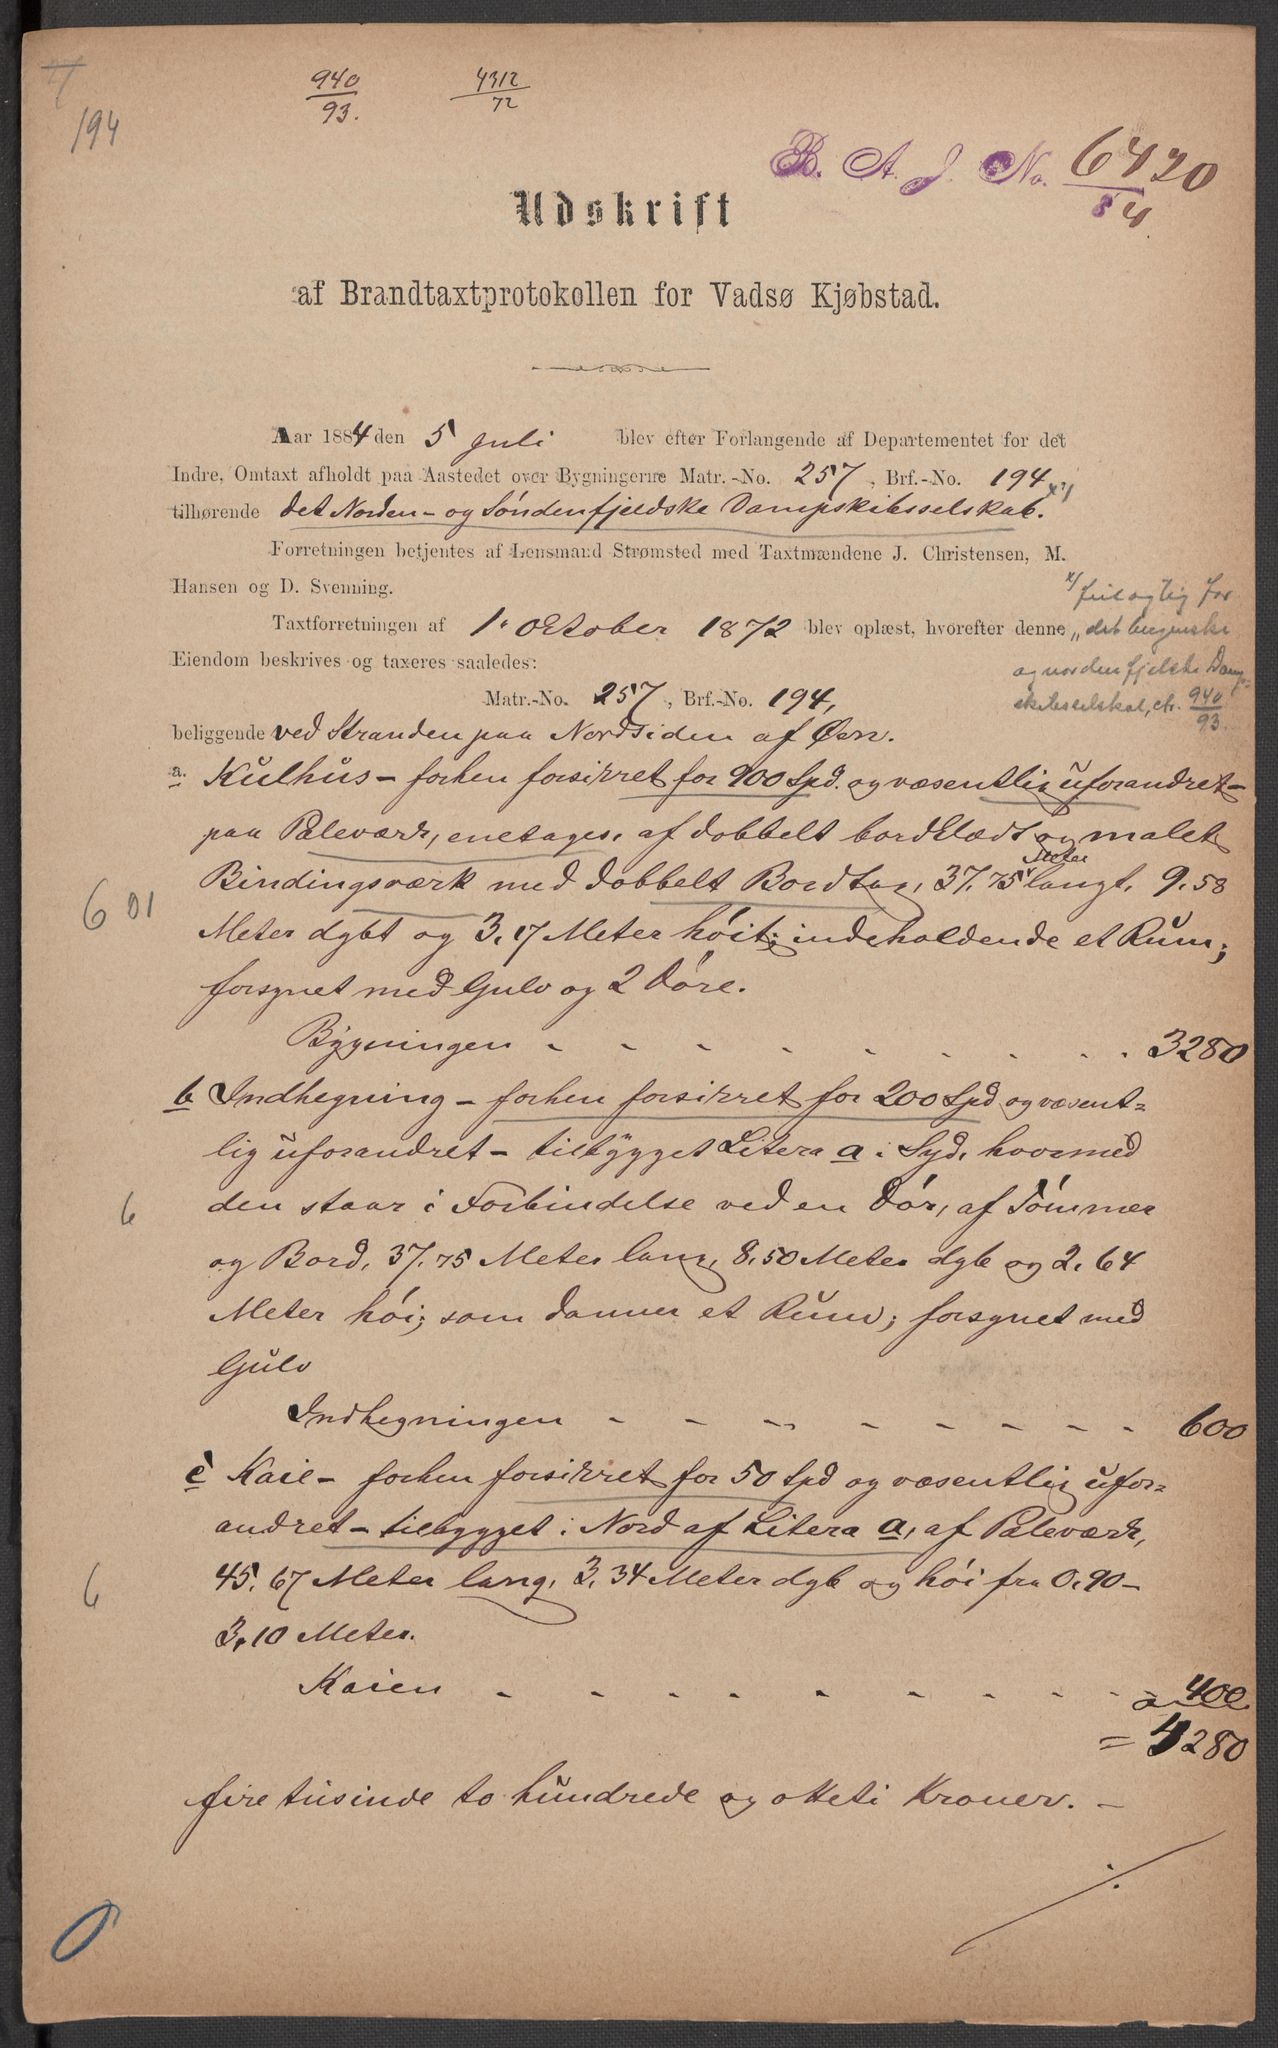 194
940
93.
4312
72
B. A. J. No. 6420
84
Udskrift
af Brandtaxtprotokollen for Vadsø Kjøbstad.
Aar 1884 den 5 Juli blev efter Forlangende af Departementet for det
Indre, Omtaxt afholdt paa Aastedet over Bygningerne Matr.-No. 257, Brf.-No. 194 x)
tilhørende det Norden- og Søndenfjeldske Dampskibsselskab.
Forretningen betjentes af Lensmand Strømsted med Taxtmændene J. Christensen, M.
Hansen og D. Svenning.
x/ feilagtig for
Taxtforretningen af 1. October 1872 blev oplæst, hvorefter denne
„det bergenske
Eiendom beskrives og taxeres saaledes:
og nordenfjelske Damp-
Matr.-No. 257, Brf.-No. 194,
skibsselskab, cfr. 940
93.
beliggende ved Stranden paa Nordsiden af Øen.
a. Kulhus – forhen forsikret for 900 Spd. og væsentlig uforandret –
paa Paleværk, enetages, af dobbelt bordklædt og malet
Bindingsværk med dobbelt Bordtag, 37.75 Meter langt, 9.58
601
Meter dybt og 3.17 Meter höit; indeholdende et Rum;
forsynet med Gulv og 2 Döre.
Bygningen - - - - - - - - 3280
b Indhegning – forhen forsikret for 200 Spd og væsent=
lig uforandret – tilbygget Litera a i Syd, hvormed
den staar i Forbindelse ved en Dör, af Tömmer
6
og Bord, 37.75 Meter lang, 8.50 Meter dyb og 2.64
Meter höi; som danner et Rum; forsynet med
Gulv
Indhegningen - - - - - - - - 600
c Kaie – forhen forsikret for 50 Spd og væsentlig ufor=
andret – tilbygget i Nord af Litera a, af Paleværk,
45.67 Meter lang, 3.34 Meter dyb og höi fra 0.90 –
6
3.10 Meter.
Kaien - - - - - - - - - 400
= 4280
fire tusinde to hundrede og otteti Kroner. –